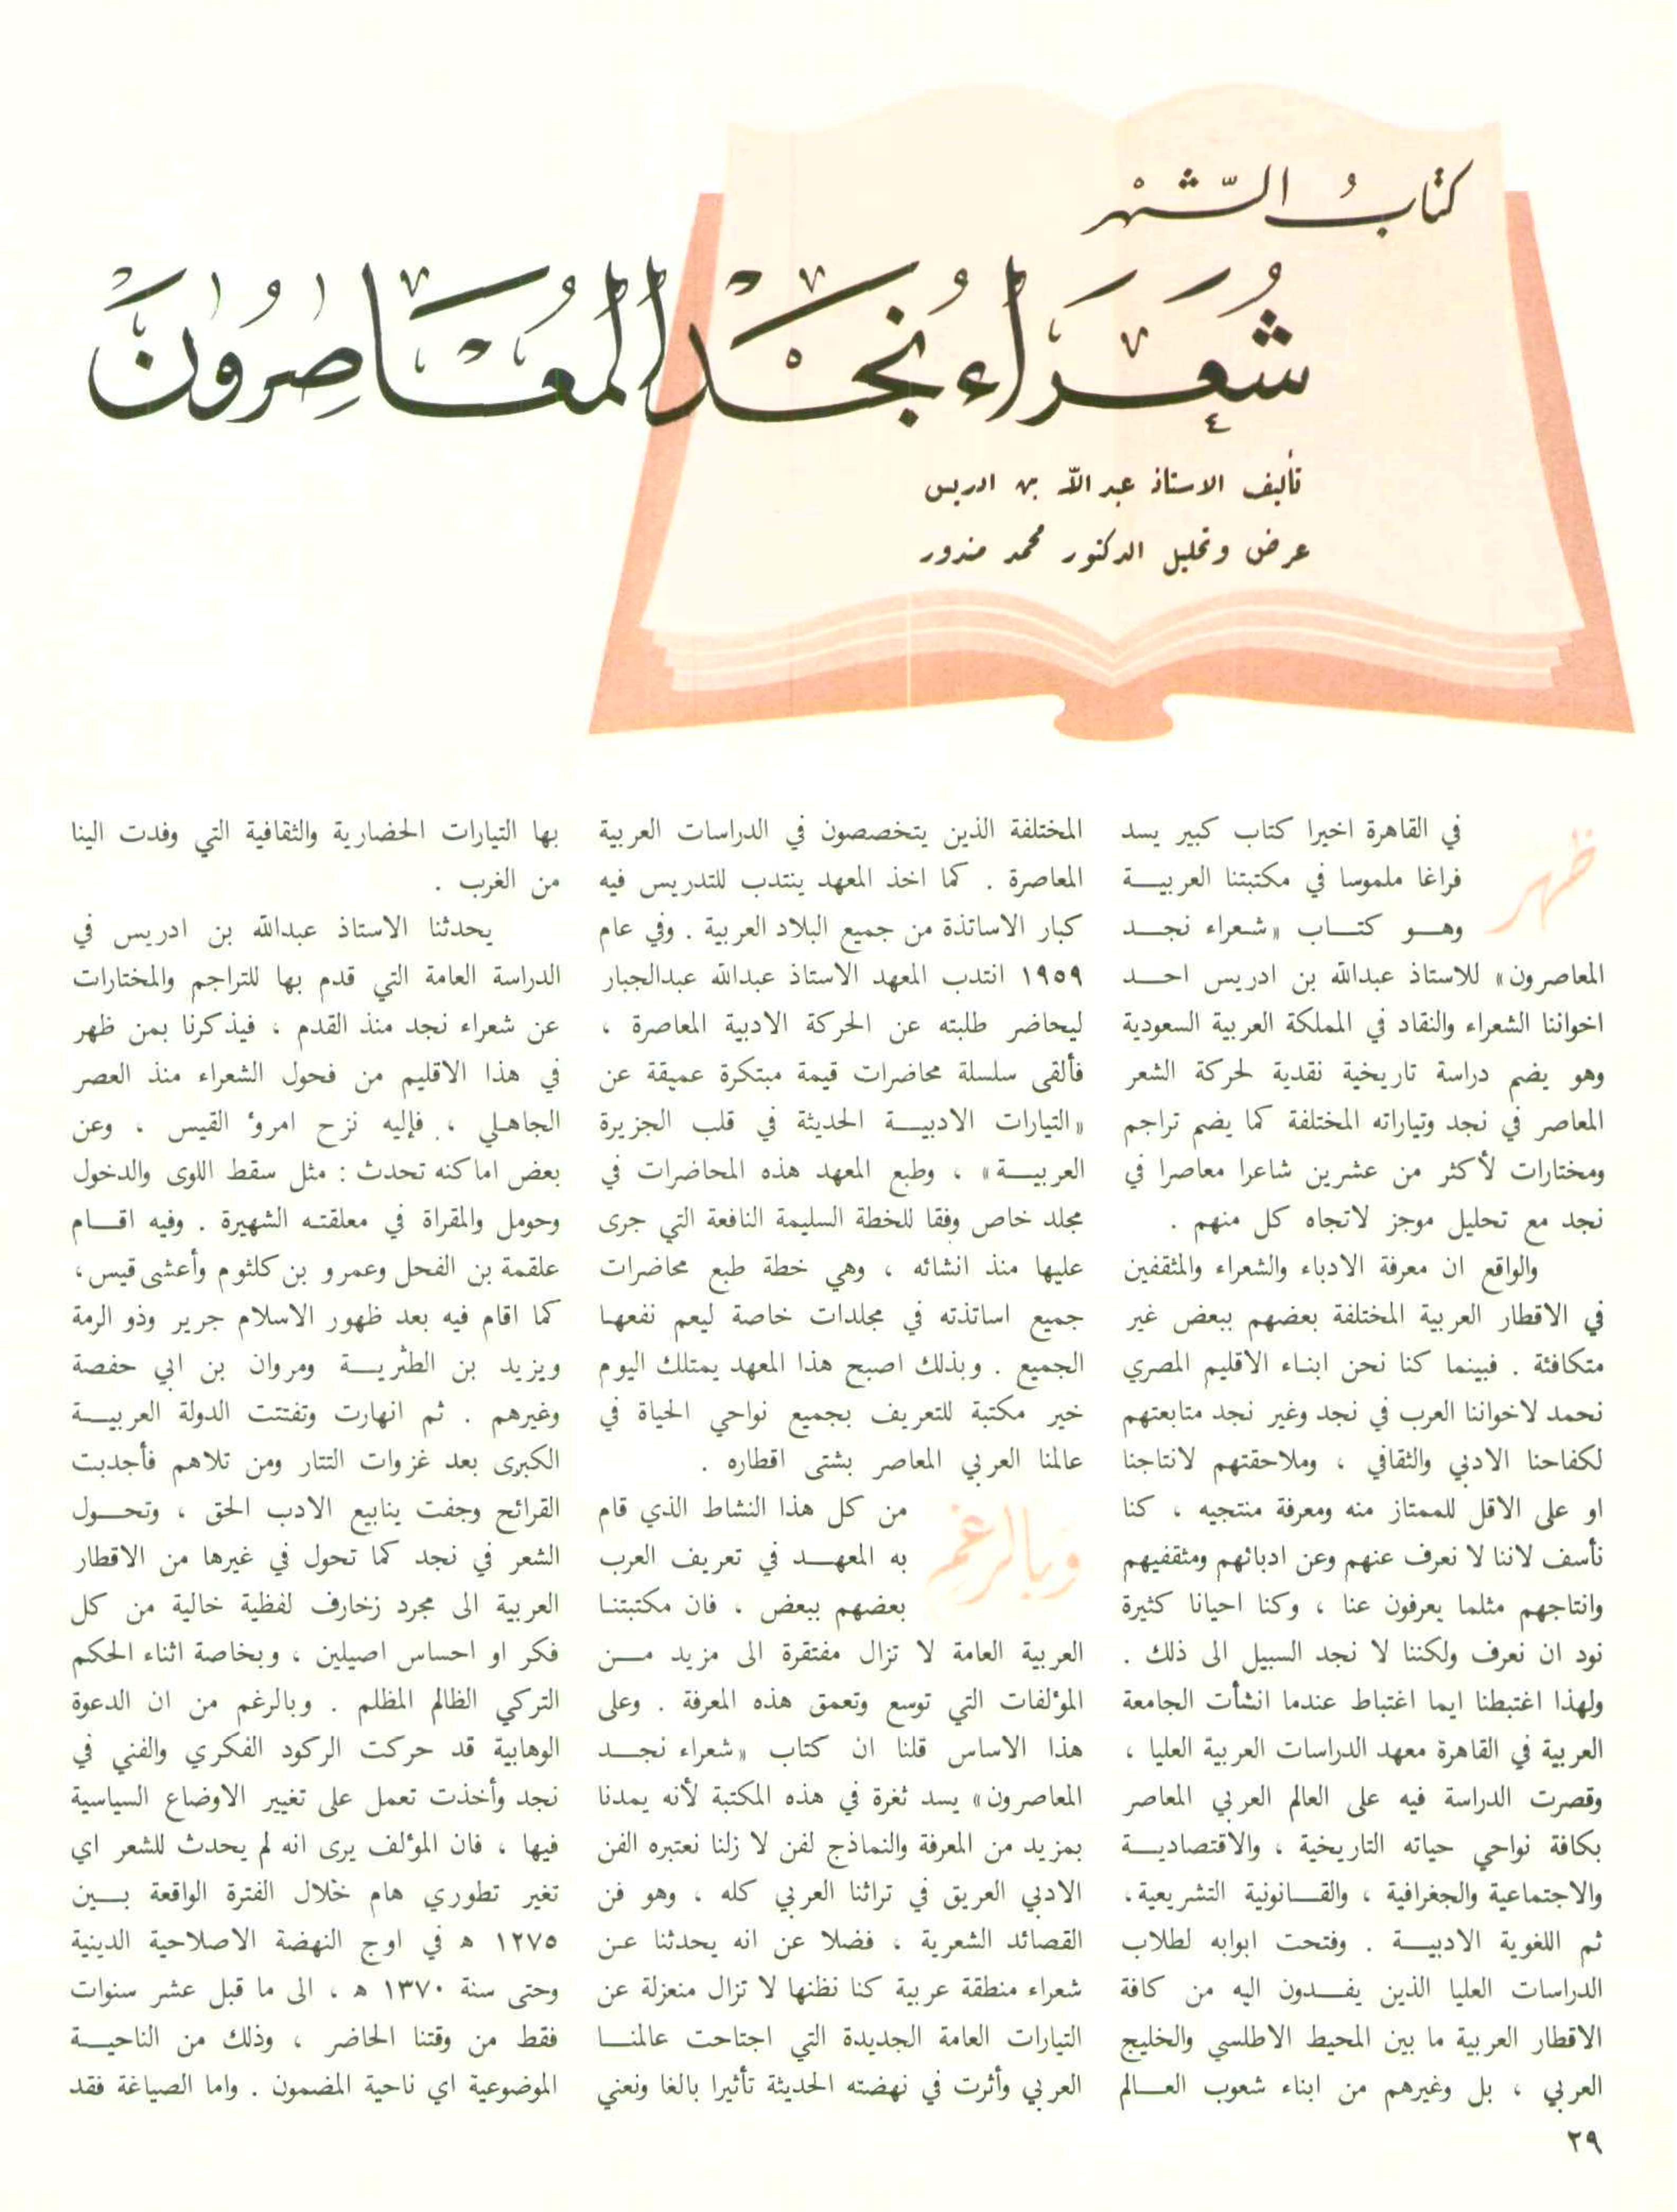 كتاب الشهر
شعراء نجد المعاصرون
تأليف الاستاذ عبد الله بن ادريس
عرض وتحليل الدكتور محمد مندور
ظهر في القاهرة اخيرا كتاب كبير يسد
فراغا ملموسا في مكتبتنا العربيـــة
وهـــو كتـــاب «شعراء نجـــد
المعاصرون» للاستاذ عبدالله بن ادريس احـــد
اخواننا الشعراء والنقاد في المملكة العربية السعودية
وهو يضم دراسة تاريخية نقدية لحركة الشعر
المعاصر في نجد وتياراته المختلفة كما يضم تراجم
ومختارات لأكثر من عشرين شاعرا معاصرا في
نجد مع تحليل موجز لاتجاه كل منهم .
والواقع ان معرفة الادباء والشعراء والمثقفين
في الاقطار العربية المختلفة بعضهم ببعض غير
متكافئة . فبينما كنا نحن ابناء الاقليم المصري
نحمد لاخواننا العرب في نجد وغير نجد متابعتهم
لكفاحنا الادبي والثقافي ، وملاحقتهم لانتاجنا
او على الاقل للممتاز منه ومعرفة منتجيه ، كنا
نأسف لاننا لا نعرف عنهم وعن ادبائهم ومثقفيهم
وانتاجهم مثلما يعرفون عنا ، وكنا احيانا كثيرة
نود ان نعرف ولكننا لا نجد السبيل الى ذلك .
ولهذا اغتبطنا ايما اغتباط عندما انشأت الجامعة
العربية في القاهرة معهد الدراسات العربية العليا ،
وقصرت الدراسة فيه على العالم العربي المعاصر
بكافة نواحي حياته التاريخية ، والاقتصاديـــة
والاجتماعية والجغرافية ، والقـــانونية التشريعية،
ثم اللغوية الادبيـــة . وفتحت ابوابه لطلاب
الدراسات العليا الذين يفـــدون اليه من كافة
الاقطار العربية ما بين المحيط الاطلسي والخليج
العربي ، بل وغيرهم من ابناء شعوب العـــالم
المختلفة الذين يتخصصون في الدراسات العربية
المعاصرة . كما اخذ المعهد ينتدب للتدريس فيه
كبار الاساتذة من جميع البلاد العربية . وفي عام
١٩٥٩ انتدب المعهد الاستاذ عبدالله عبدالجبار
ليحاضر طلبته عن الحركة الادبية المعاصرة ،
فألقى سلسلة محاضرات قيمة مبتكرة عميقة عن
«التيارات الادبيـــة الحديثة في قلب الجزيرة
العربيـــة» ، وطبع المعهد هذه المحاضرات في
مجلد خاص وفقا للخطة السليمة النافعة التي جرى
عليها منذ انشائه ، وهي خطة طبع محاضرات
جميع اساتذته في مجلدات خاصة ليعم نفعهـا
الجميع . وبذلك اصبح هذا المعهد يمتلك اليوم
خير مكتبة للتعريف بجميع نواحي الحياة في
عالمنا العربي المعاصر بشتى اقطاره .
وبالرغم من كل هذا النشاط الذي قام
به المعهـــد في تعريف العرب
بعضهم ببعض ، فان مكتبتنـا
العربية العامة لا تزال مفتقرة الى مزيد مـــن
المؤلفات التي توسع وتعمق هذه المعرفة . وعلى
هذا الاساس قلنا ان كتاب «شعراء نجـــد
المعاصرون» يسد ثغرة في هذه المكتبة لأنه يمدنا
بمزيد من المعرفة والنماذج لفن لا زلنا نعتبره الفن
الادبي العريق في تراثنا العربي كله ، وهو فن
القصائد الشعرية ، فضلا عن انه يحدثنا عـن
شعراء منطقة عربية كنا نظنها لا تزال منعزلة عن
التيارات العامة الجديدة التي اجتاحت عالمنـــا
العربي وأثرت في نهضته الحديثة تأثيرا بالغا ونعني
بها التيارات الحضارية والثقافية التي وفدت الينا
من الغرب .
يحدثنا الاستاذ عبدالله بن ادريس في
الدراسة العامة التي قدم بها للتراجم والمختارات
عن شعراء نجد منذ القدم ، فيذكرنا بمن ظهر
في هذا الاقليم من فحول الشعراء منذ العصر
الجاهـلي ، فإليه نزح امرؤ القيس ، وعن
بعض اماكنه تحدث : مثل سقط اللوى والدخول
وحومل والمقراة في معلقتـه الشهيرة . وفيه اقـــام
علقمة بن الفحل وعمرو بن كلثوم وأعشى قيس،
كما اقام فيه بعد ظهور الاسلام جرير وذو الرمة
ويزيد بن الطثريـــة ومروان بن ابي حفصة
وغيرهم . ثم انهارت وتفتتت الدولة العربيـــة
الكبرى بعد غزوات التتار ومن تلاهم فأجدبت
القرائح وجفت ينابيع الادب الحق ، وتحـــول
الشعر في نجد كما تحول في غيرها من الاقطار
العربية الى مجرد زخارف لفظية خالية من كل
فكر او احساس اصيلين ، وبخاصة اثناء الحكم
التركي الظالم المظلم . وبالرغم من ان الدعوة
الوهابية قد حركت الركود الفكري والفني في
نجد وأخذت تعمل على تغيير الاوضاع السياسية
فيها ، فان المؤلف يرى انه لم يحدث للشعر اي
تغير تطوري هام خلال الفترة الواقعة بـــين
١٢٧٥ ه في اوج النهضة الاصلاحية الدينية
وحتى سنة ١٣٧٠ ه ، الى ما قبل عشر سنوات
فقط من وقتنا الحاضر ، وذلك من الناحيـــة
الموضوعية اي ناحية المضمون . واما الصياغة فقد
٢٩